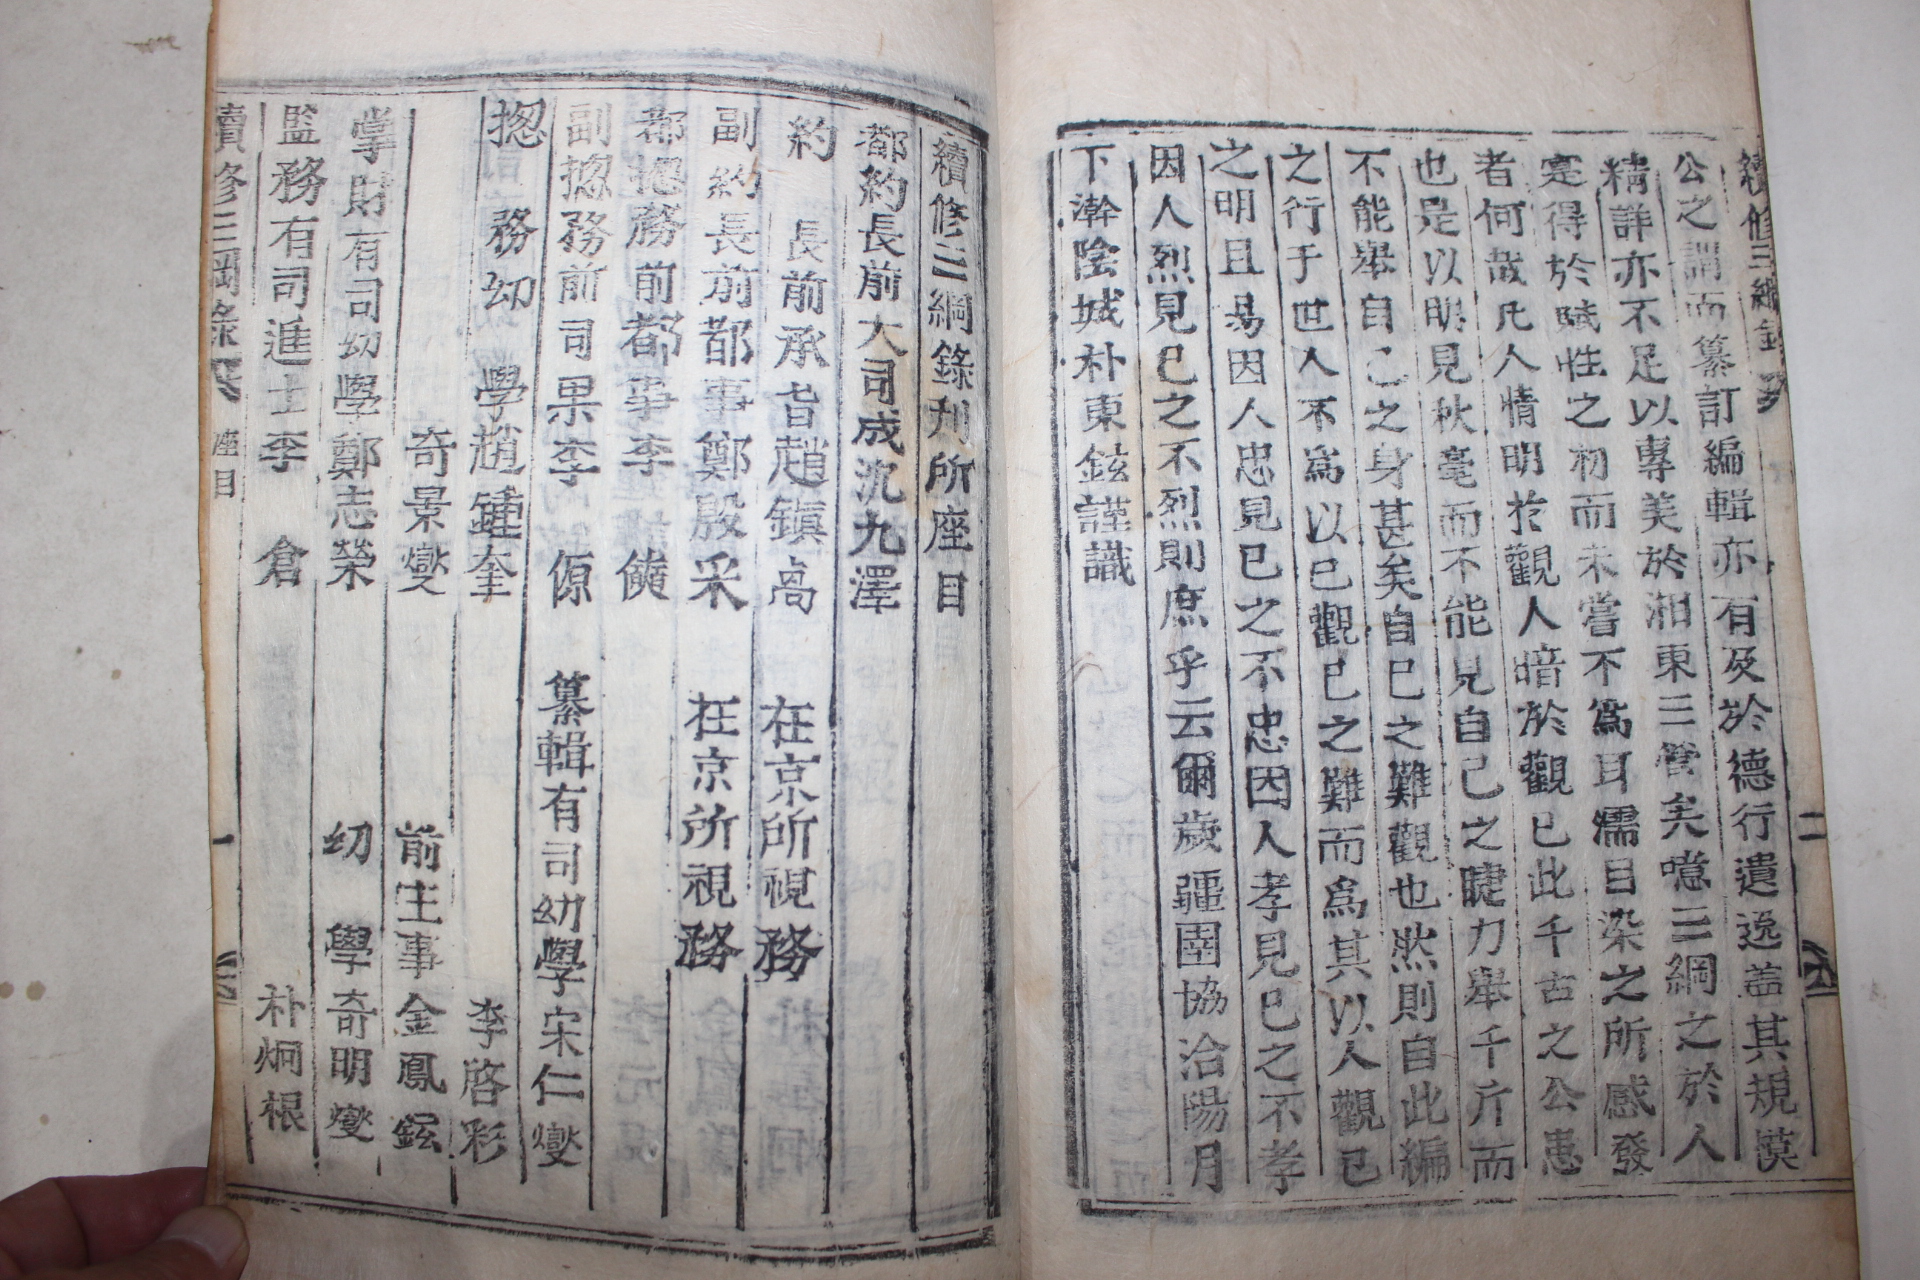 續修三綱錄
二
公之謂而纂訂編輯亦有及於德行遺逸盖其規謨
精詳亦不足以專美於湘東三管矣噫三綱之於人
寔得於賦性之初而未嘗不爲耳濡目染之所感發
者何哉凡人情明於觀人暗於觀已此千古之公患
也是以明見秋毫而不能見自己之睫力舉千斤而
不能舉自己之身甚矣自巳之難觀也然則自此編
之行于世人不爲以已觀已之難而爲其以人觀已
之明且易因人忠見已之不忠因人孝見已之不孝
因人烈見已之不烈則庶乎云爾歲疆圉協洽陽月
下澣陰城朴東鉉謹識
續修三綱錄刋所座目
都約長前大司成沈九澤
約長前承旨趙鎭高 在京所視務
副約長前都事鄭殷采 在京所視務
都摠務前都事李儯
副摠務前司果李傆 纂輯有司幼學宋仁燮
摠務幼學趙鍾奎 李啓彩
奇景燮 前主事金鳳鉉
掌財有司幼學鄭志榮 幼學奇明燮
監務有司進士李倉 朴炯根
續修三綱錄 座目 一